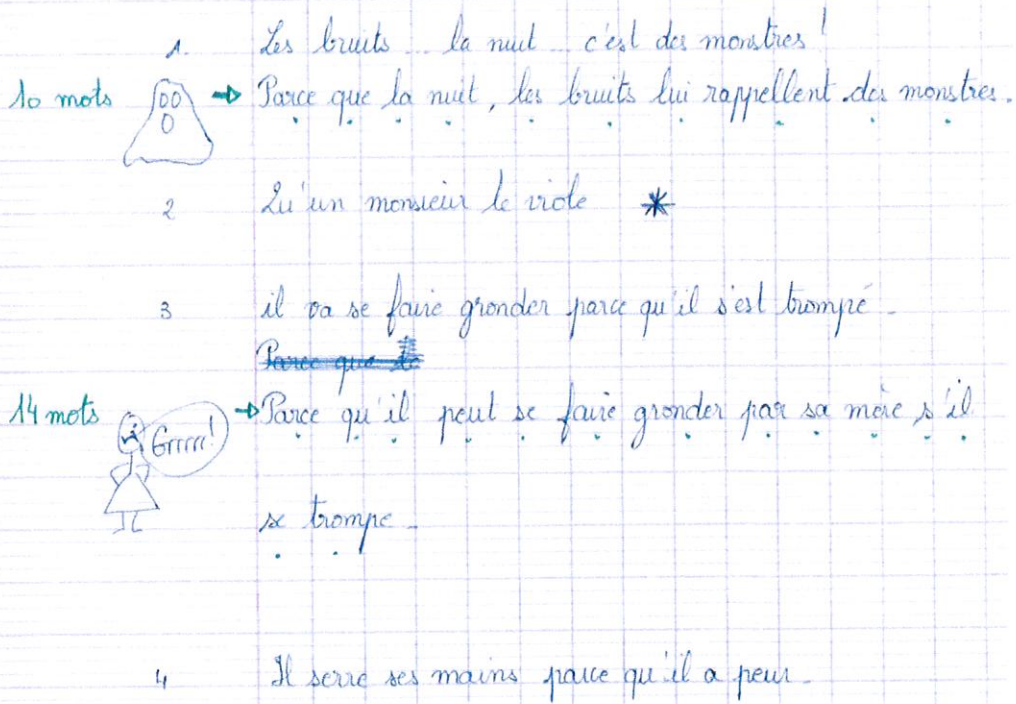 1. Les bruits... la nuit... c'est des monstres !
10 mots → Parce que la nuit, les bruits lui rappellent des monstres.
2 Qu'un monsieur le viole *
3 il va se faire gronder parce qu'il s'est trompé.
Parce que le
14 mots Grrrrr! → Parce qu'il peut se faire gronder par sa mère s'il
se trompe.
4 Il serre ses mains parce qu'il a peur.